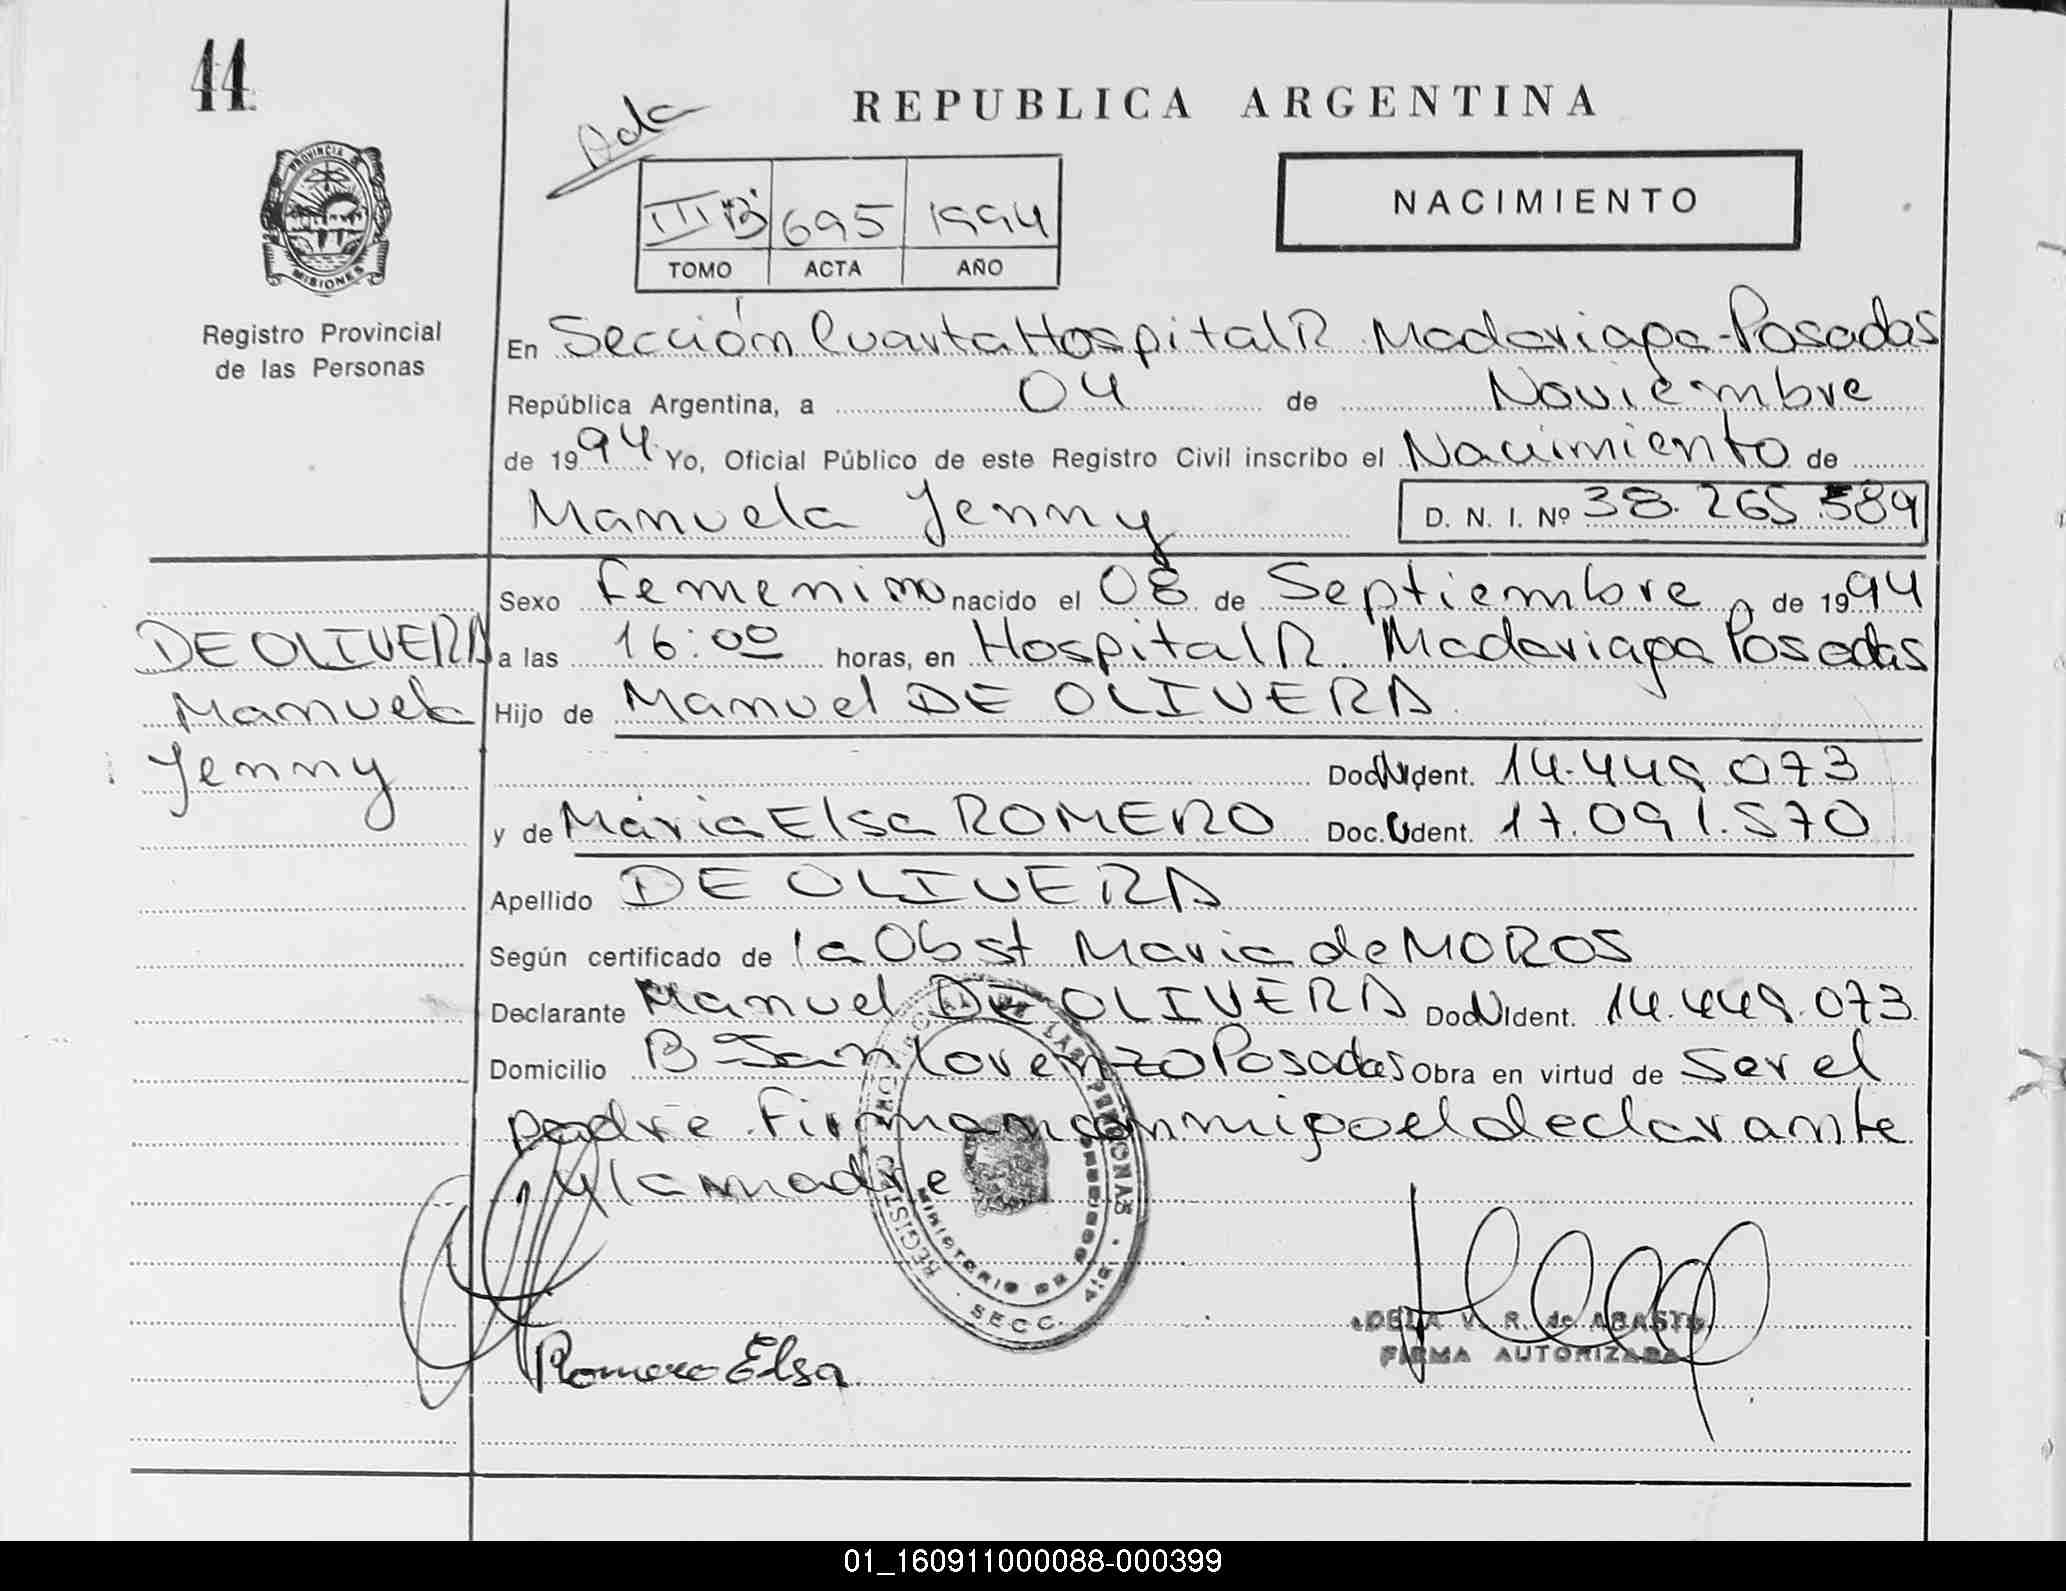 44
REPUBLICA ARGENTINA
Ada
III "B" 695 1994
TOMO ACTA AÑO
NACIMIENTO
PROVINCIA DE
MISIONES
Registro Provincial
de las Personas
En Sección Cuarta Hospital R. Madariaga - Posadas
República Argentina, a 04 de Noviembre
de 1994 Yo, Oficial Público de este Registro Civil inscribo el Nacimiento de
Manuela Jenny D. N. I. Nº 38.265.589
Sexo femenino nacido el 08 de Septiembre de 1994
DE OLIVERA
Manuela
Jenny
a las 16:00 horas, en Hospital R. Madariaga Posadas
Hijo de Manuel DE OLIVERA
Doc. Ident. 14.449.073
y de Maria Elsa ROMERO Doc. Ident. 17.091.570
Apellido DE OLIVERA
Según certificado de la Obst Maria de MOROS
Declarante Manuel DE OLIVERA Doc. Ident. 14.449.073
Domicilio B San Lorenzo Posadas Obra en virtud de ser el
padre. Firman conmigo el declarante
y la madre
REGISTRO DE LAS PERSONAS
MINISTERIO DE GOBIERNO
SECC. 4ta.
Romero Elsa
ADELA V. R. de
FIRMA AUTORIZADA
01_160911000088-000399